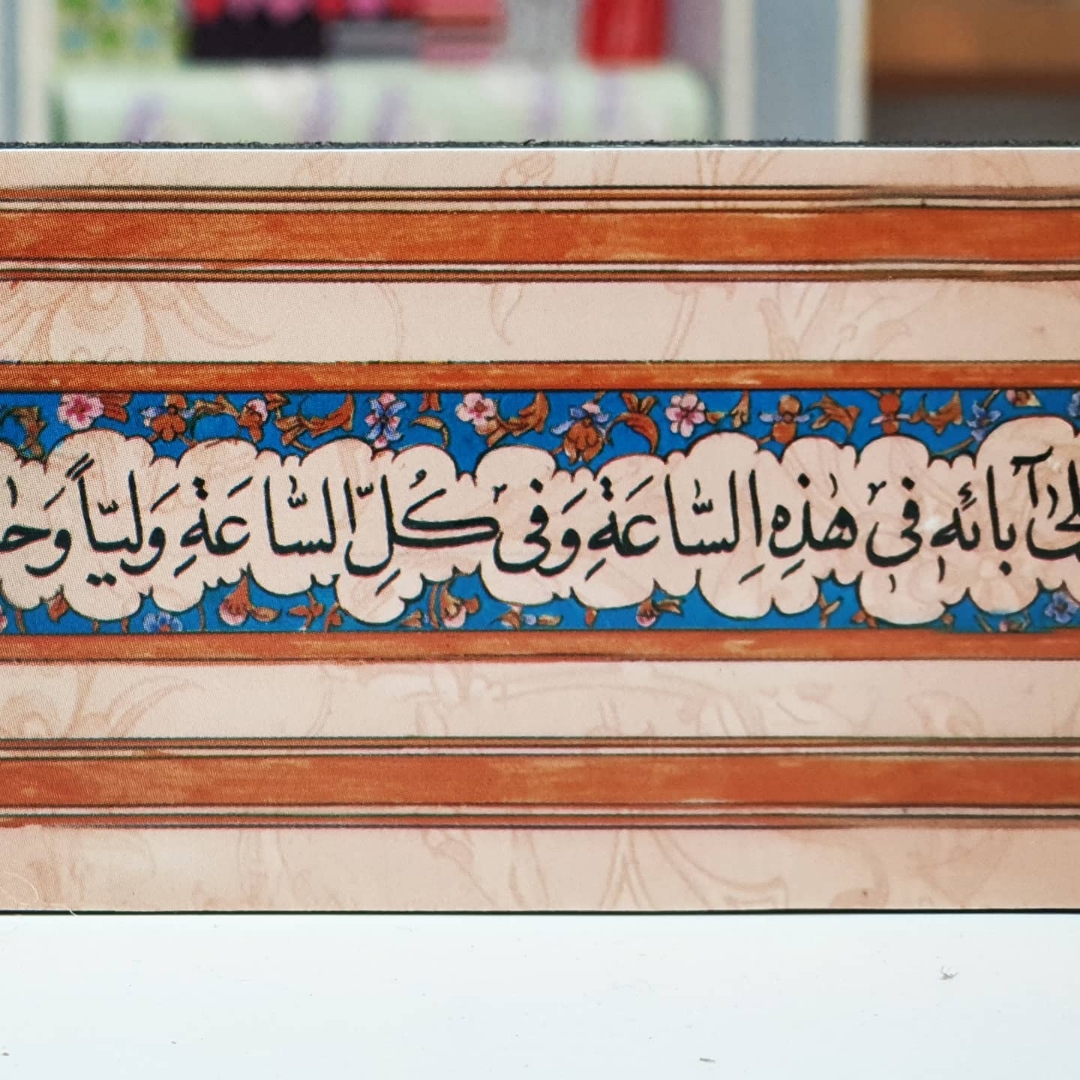 آبائه فى هٰذِهِ السَّاعَةِ وَفى كُلِّ السَّاعَةِ وَليّاً